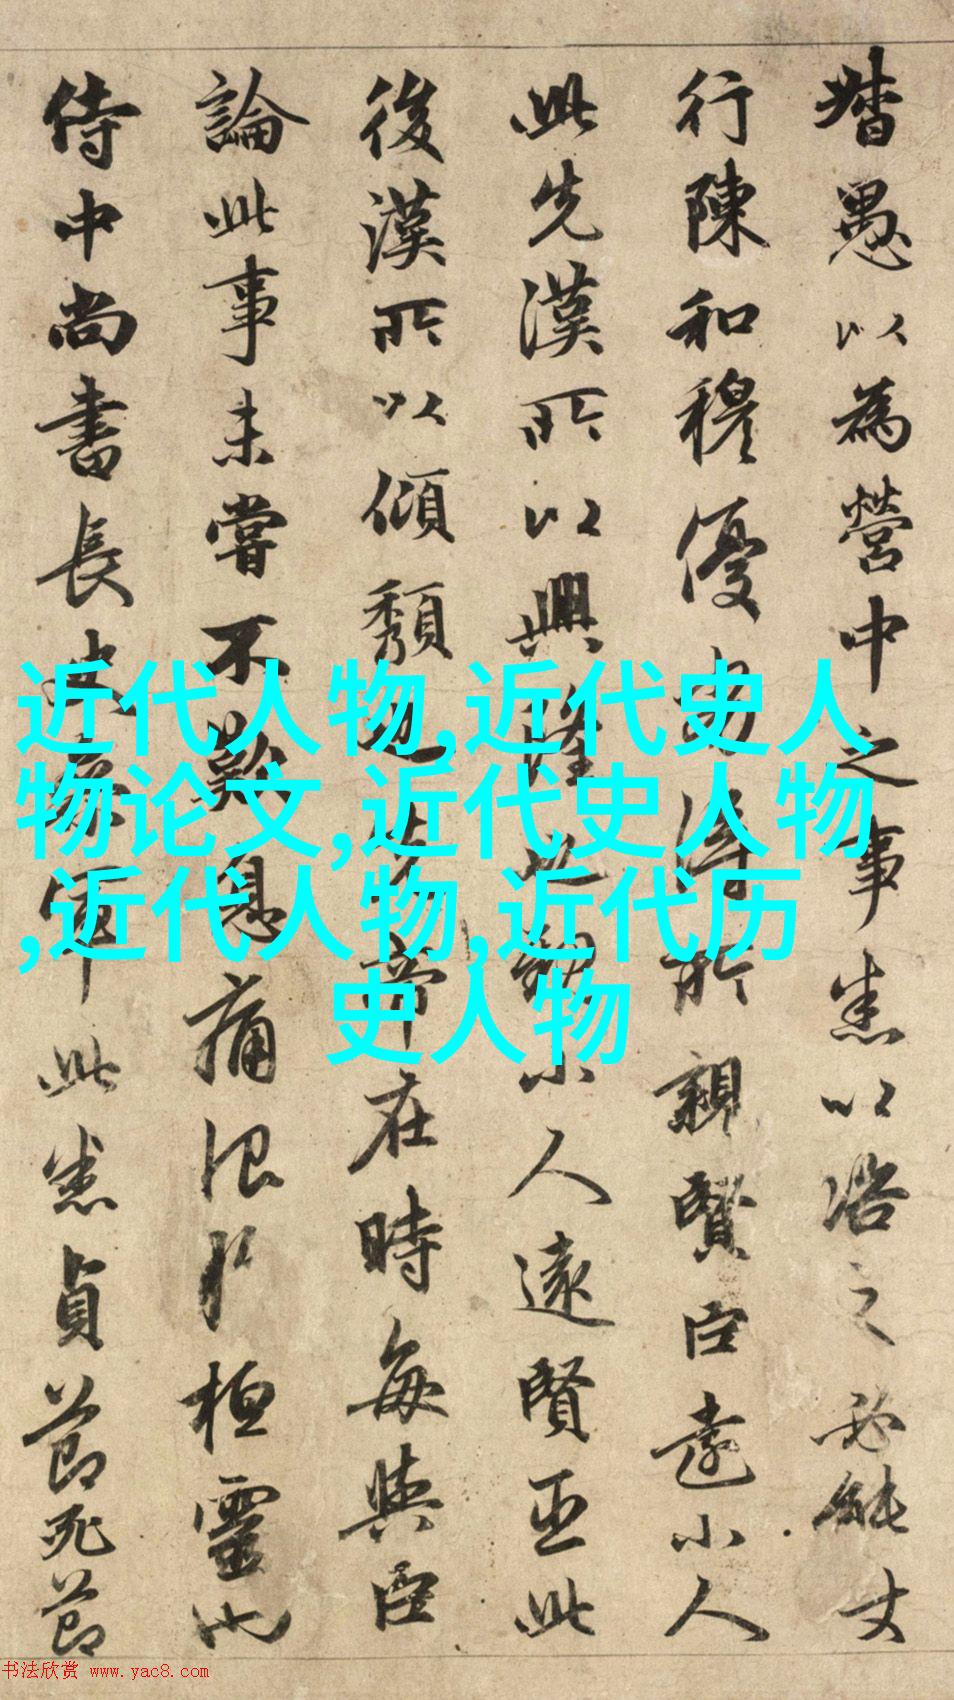 愚以為營中之事悉以之必能
行陳和穆優劣得所親賢臣遠小人
此先漢所以興隆也親小人遠賢臣此
後漢所以傾頹也先帝在時每與臣
論此事未嘗不歎息痛恨於桓靈也
侍中尚書長史參軍此悉貞節死節
近代人物,近代史人
物论文,近代史人物
,近代人物,近代历
史人物
书法欣赏 www.yac8.com